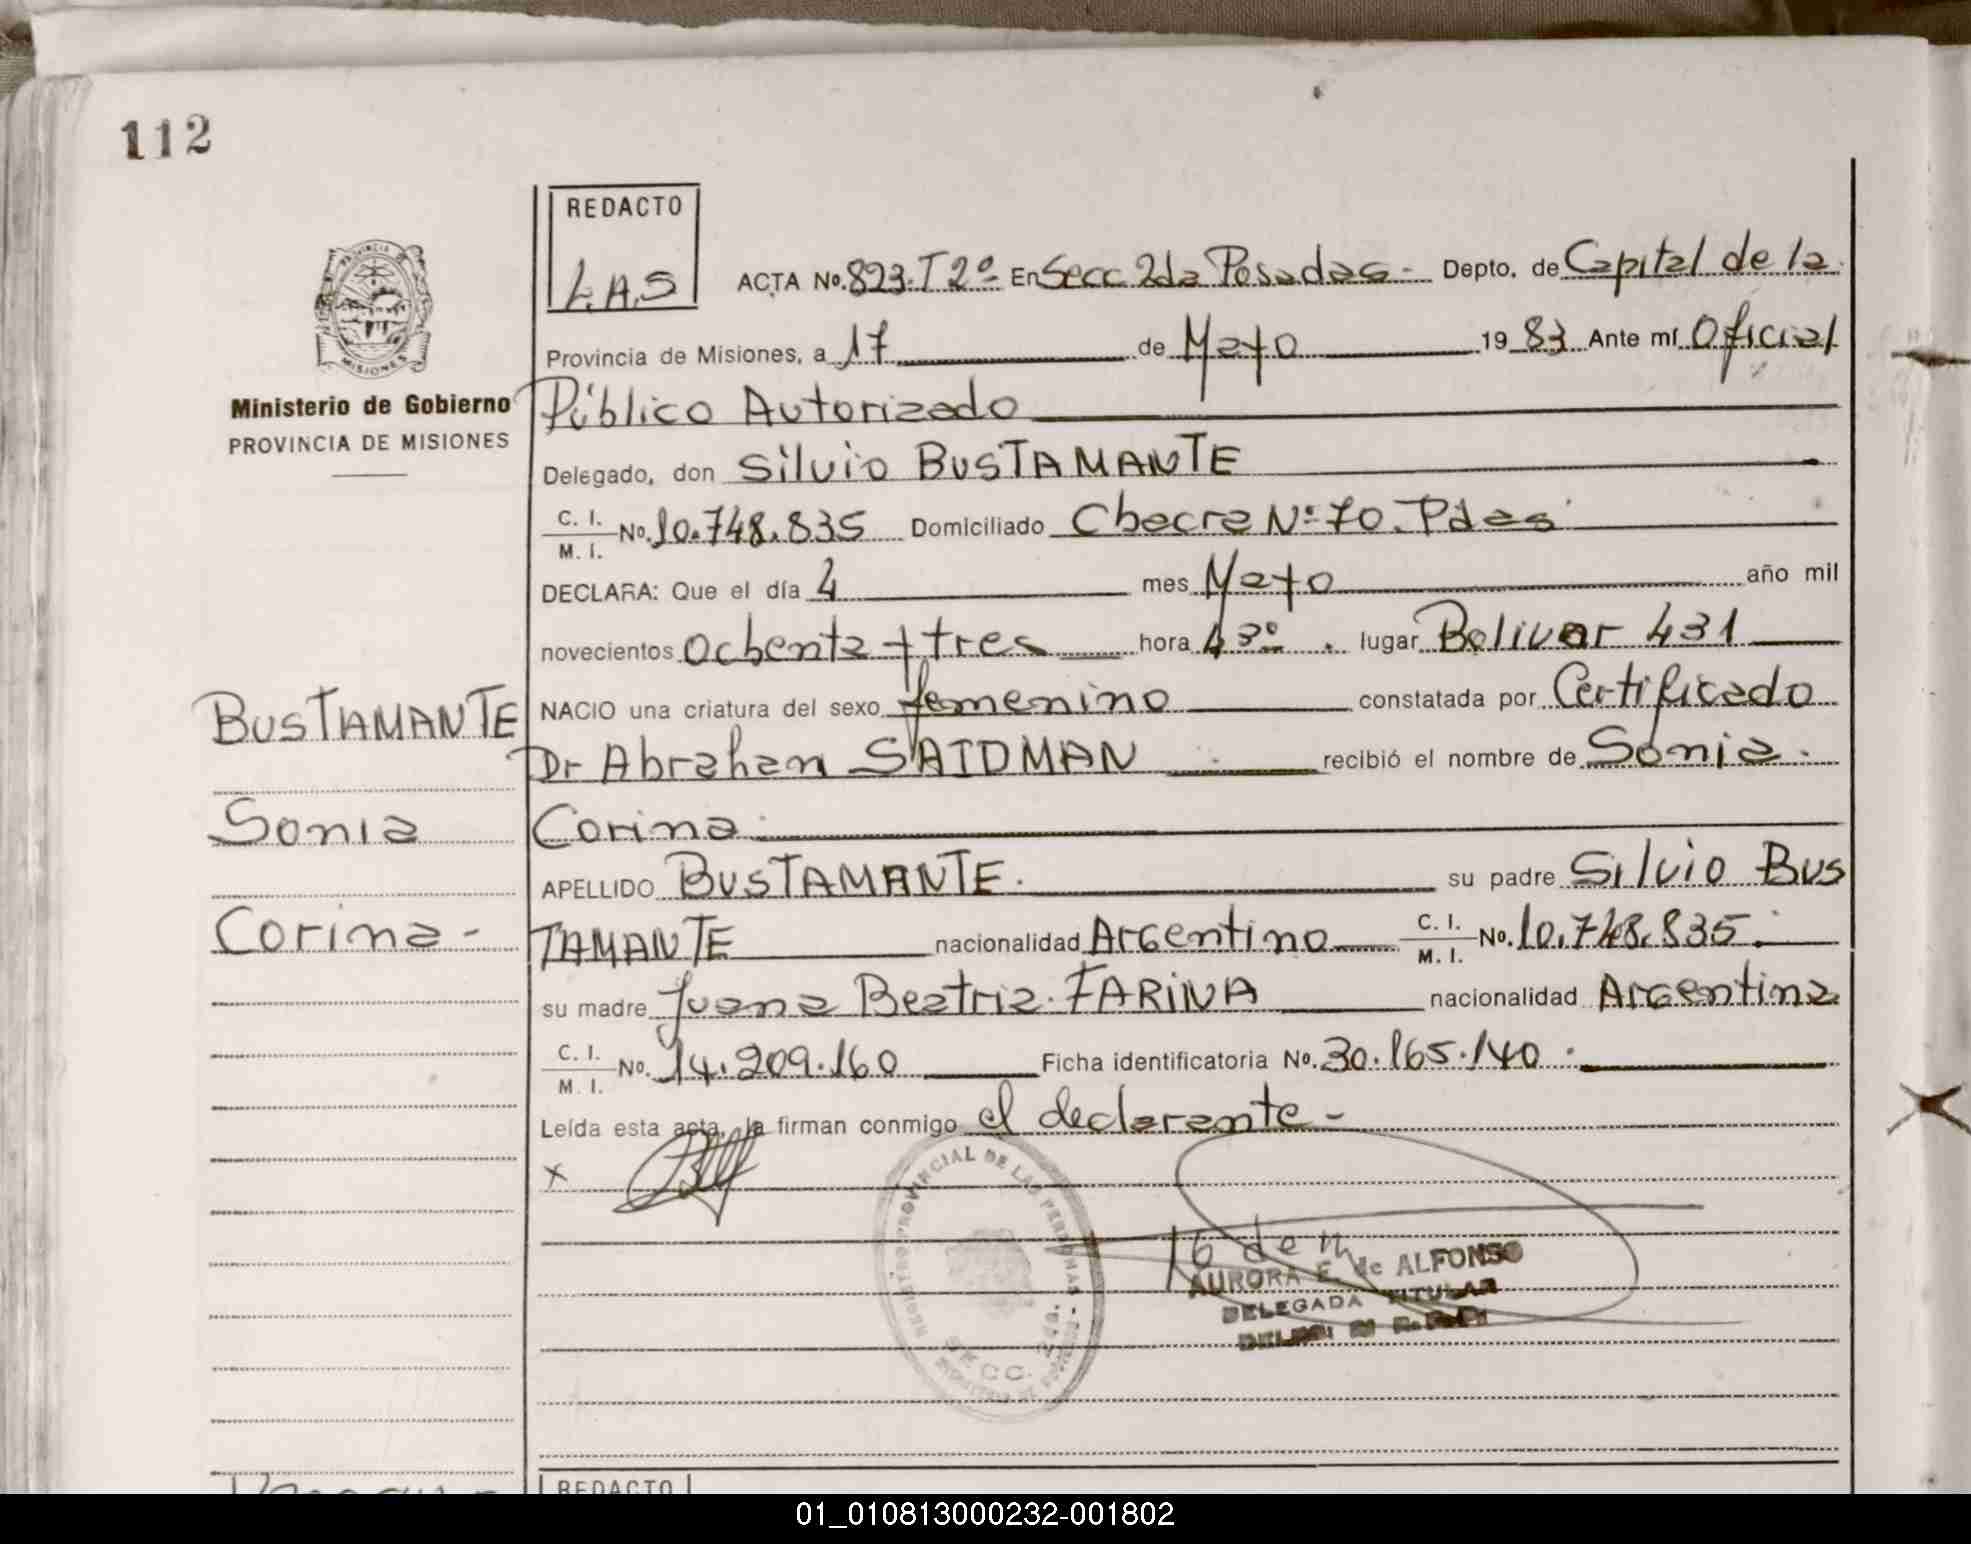 112
REDACTO
L.A.S
ACTA No. 823. T 2º En Secc 2da Posadas - Depto. de Capital de la
Provincia de Misiones, a 17 de Mayo 1983 Ante mí Oficial
Ministerio de Gobierno
PROVINCIA DE MISIONES
Público Autorizado
Delegado, don Silvio BUSTAMANTE
C. I. / M. I. No. 10.748.835 Domiciliado Chacra Nº 70. Pdas
DECLARA: Que el día 4 mes Mayo año mil
novecientos ochenta y tres hora 4 3º lugar Bolivar 431
NACIO una criatura del sexo femenino constatada por Certificado
Dr Abraham SAIDMAN recibió el nombre de Sonia
Corina
APELLIDO BUSTAMANTE. su padre Silvio BUS
TAMANTE nacionalidad Argentino C. I. / M. I. No. 10.748.835.
su madre Juana Beatriz FARINA nacionalidad Argentina
C. I. / M. I. No. 14.209.160 Ficha identificatoria No. 30.165.140.
Leída esta acta, la firman conmigo el declarante -
x
BUSTAMANTE
Sonia
Corina -
PROVINCIA
MISIONES
REGISTRO PROVINCIAL DE LAS PERSONAS
SECC. 2da.
AURORA E. de ALFONSO
DELEGADA TITULAR
REDACTO
01_010813000232-001802